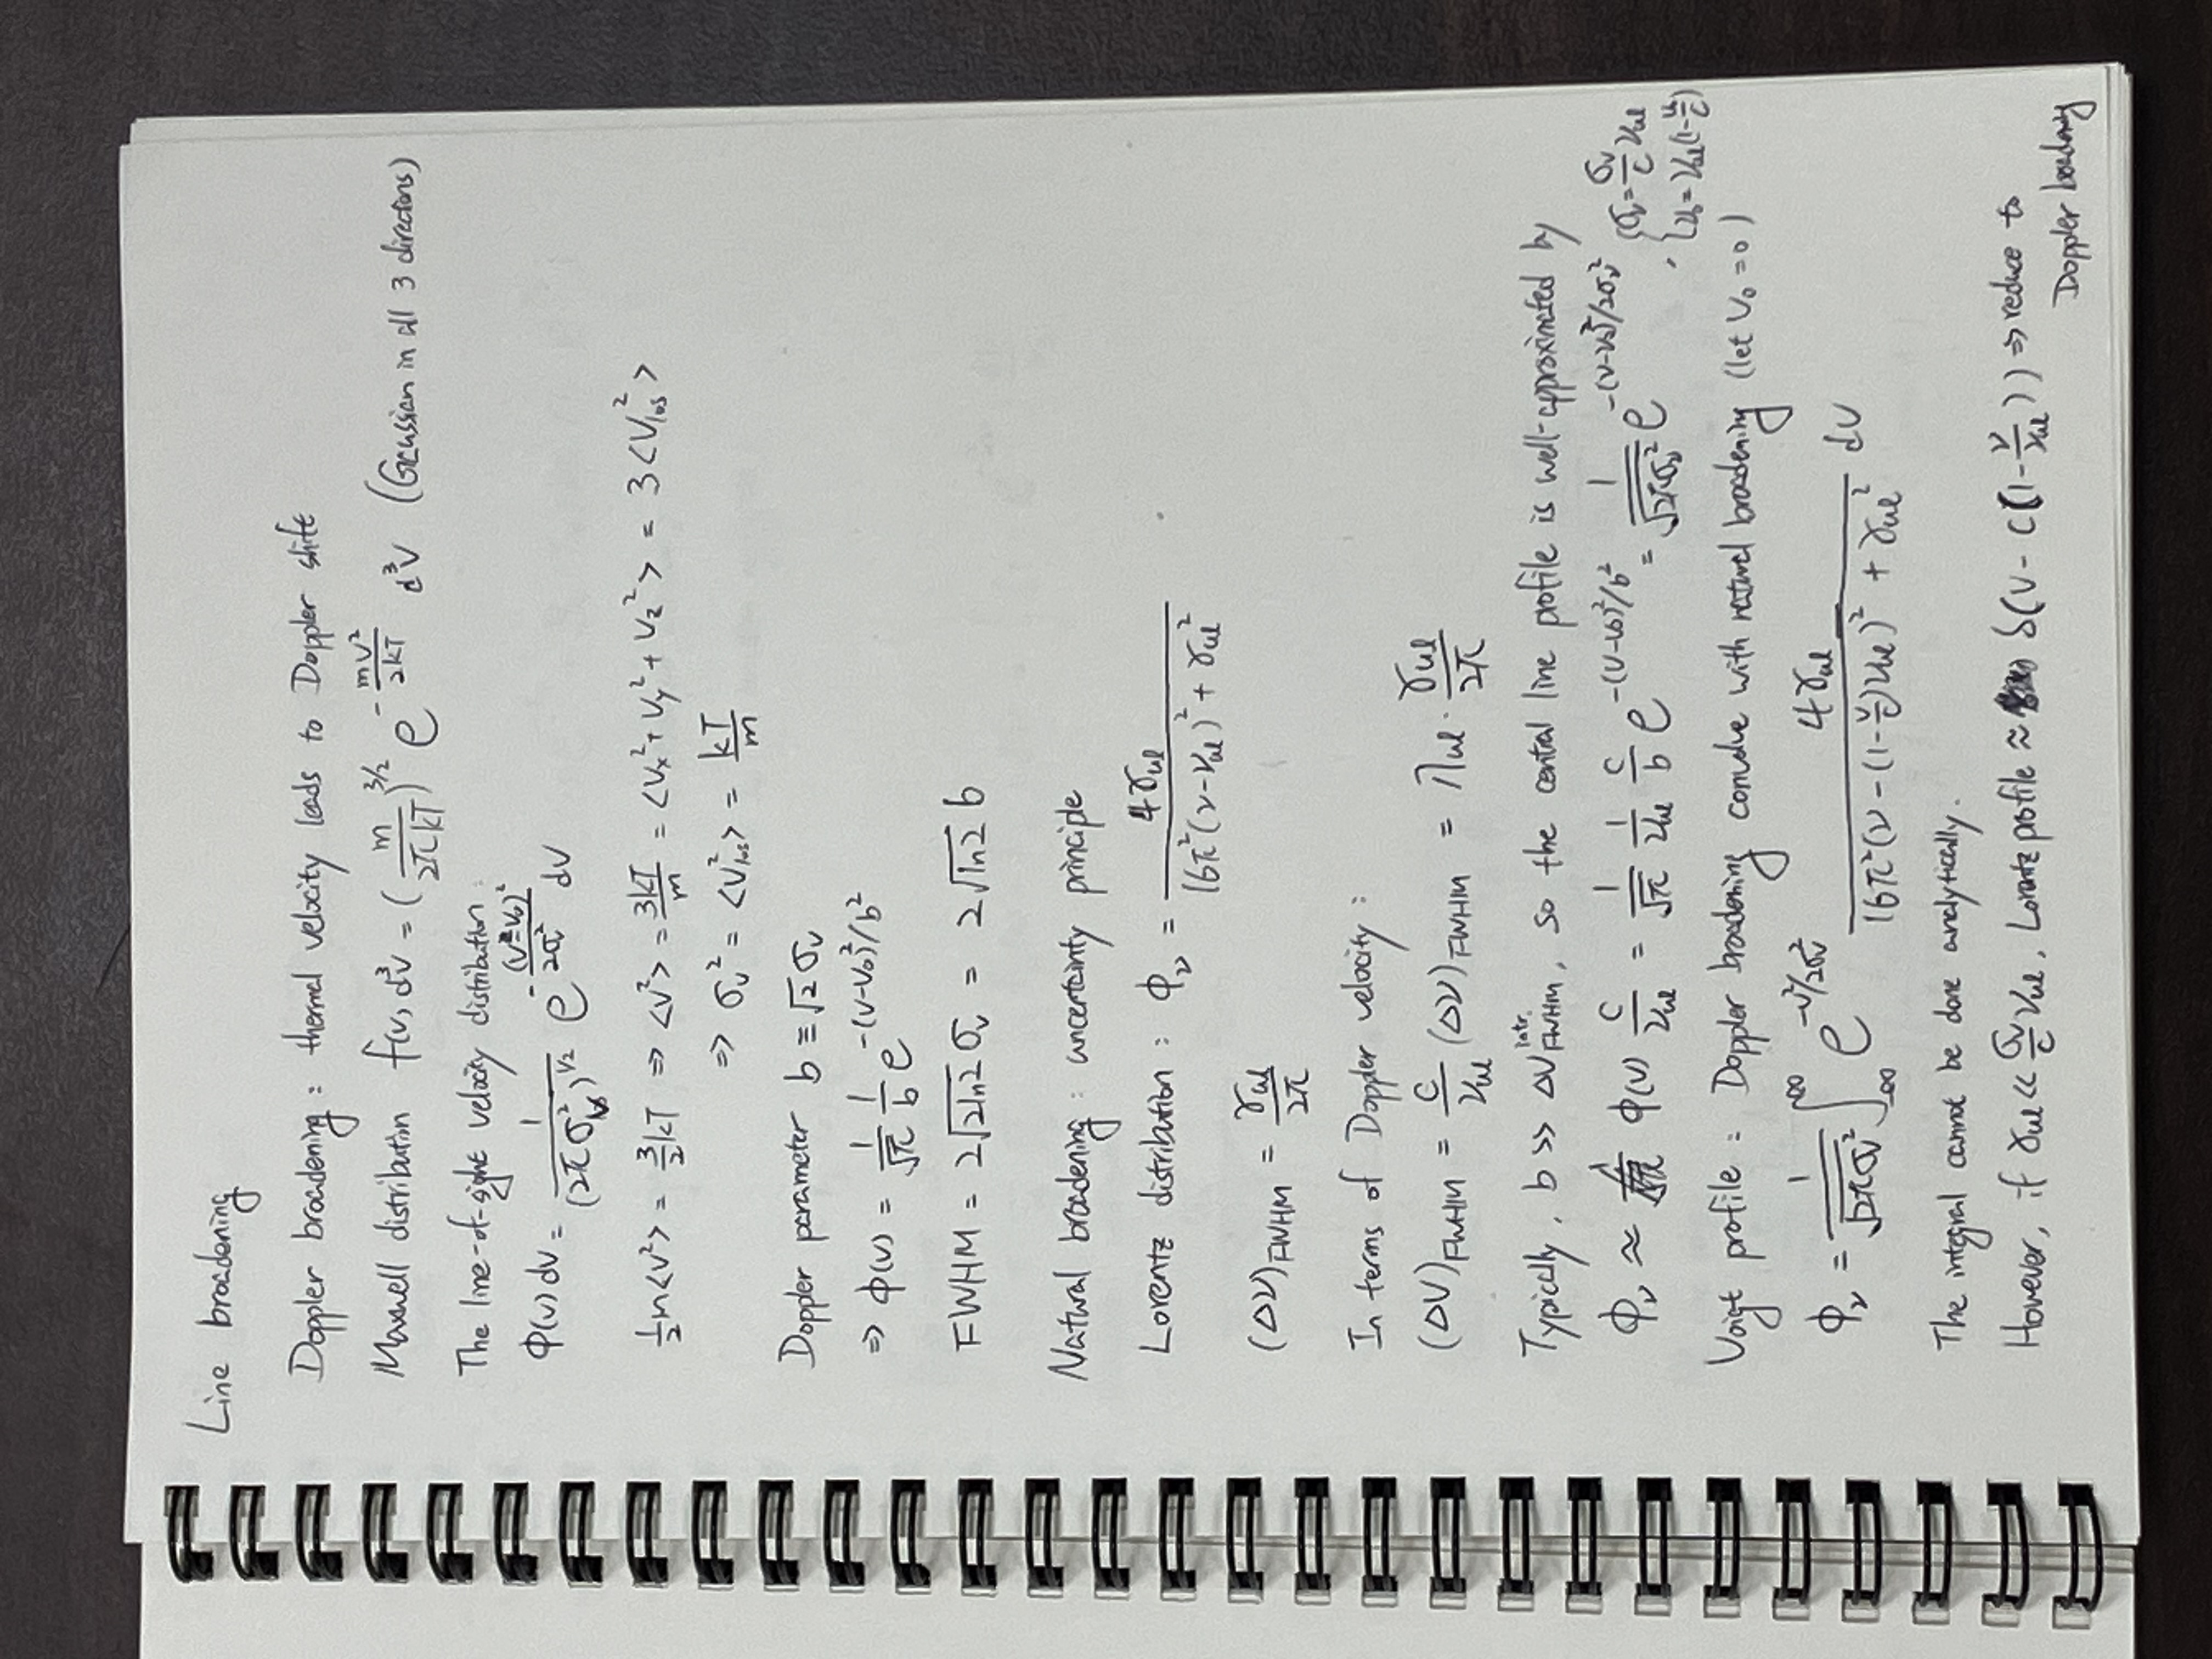 Line broadening
Doppler broadening : thermal velocity leads to Doppler shift
Maxwell distribution f(v) d³v = (m/2πkT)^3/2 e^(-mv²/2kT) d³v (Gaussian in all 3 directions)
The line-of-sight velocity distribution:
ϕ(v) dv = 1/(2πσ_v²)^1/2 e^(-(v-v₀)²/2σ_v²) dv
½m<v²> = 3/2 kT ⇒ <v²> = 3kT/m = <v_x² + v_y² + v_z²> = 3<v_los²>
⇒ σ_v² = <v_los²> = kT/m
Doppler parameter b ≡ √2 σ_v
⇒ ϕ(v) = 1/√π 1/b e^(-(v-v₀)²/b²)
FWHM = 2√(2ln2) σ_v = 2√(ln2) b
Natural broadening : uncertainty principle
Lorentz distribution : ϕ_ν = 4γ_ul / (16π²(ν-ν_ul)² + γ_ul²)
(Δν)_FWHM = γ_ul/2π
In terms of Doppler velocity :
(Δv)_FWHM = c/ν_ul (Δν)_FWHM = λ_ul · γ_ul/2π
Typically, b >> Δv_FWHM^intr., so the central line profile is well-approximated by
ϕ_ν ≈ ϕ(v) c/ν_ul = 1/√π 1/ν_ul c/b e^(-(v-v₀)²/b²) = 1/√(2πσ_ν²) e^(-(ν-ν₀)²/2σ_ν²) , { σ_ν = σ_v/c ν_ul
ν₀ = ν_ul(1-v₀/c)
Voigt profile : Doppler broadening convolve with natural broadening (let v₀ = 0)
ϕ_ν = 1/√(2πσ_v²) ∫_-∞^∞ e^(-v²/2σ_v²) 4γ_ul / (16π²(ν-(1-v/c)ν_ul)² + γ_ul²) dv
The integral cannot be done analytically.
However, if γ_ul << σ_v/c ν_ul, Lorentz profile ≈ δ(v - c(1-ν/ν_ul)) ⇒ reduce to
Doppler broadening